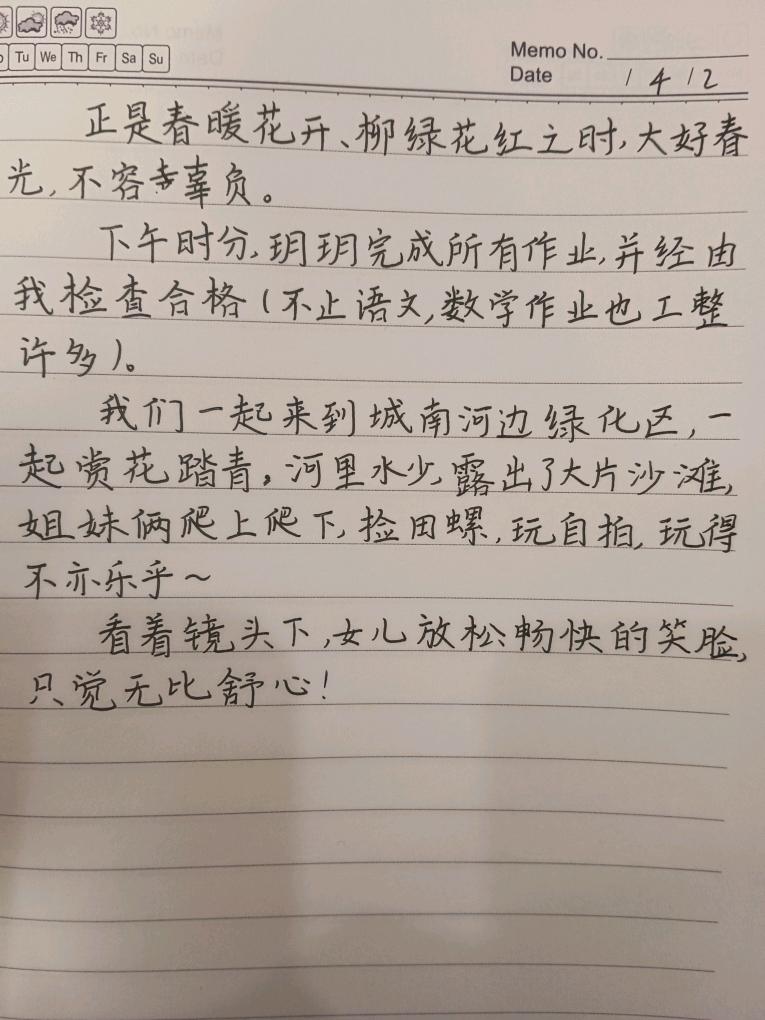 Tu We Th Fr Sa Su
Memo No.
Date / 4 / 2
正是春暖花开、柳绿花红之时,大好春
光,不容辜负。
下午时分,玥玥完成所有作业,并经由
我检查合格(不止语文,数学作业也工整
许多)。
我们一起来到城南河边绿化区,一
起赏花踏青。河里水少,露出了大片沙滩,
姐妹俩爬上爬下,捡田螺,玩自拍,玩得
不亦乐乎~
看着镜头下,女儿放松畅快的笑脸,
只觉无比舒心!